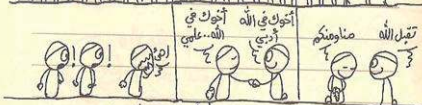 تقبل الله
منا ومنكم
أخوك في الله
أدبي
أخوك في
الله..علمي
!
!